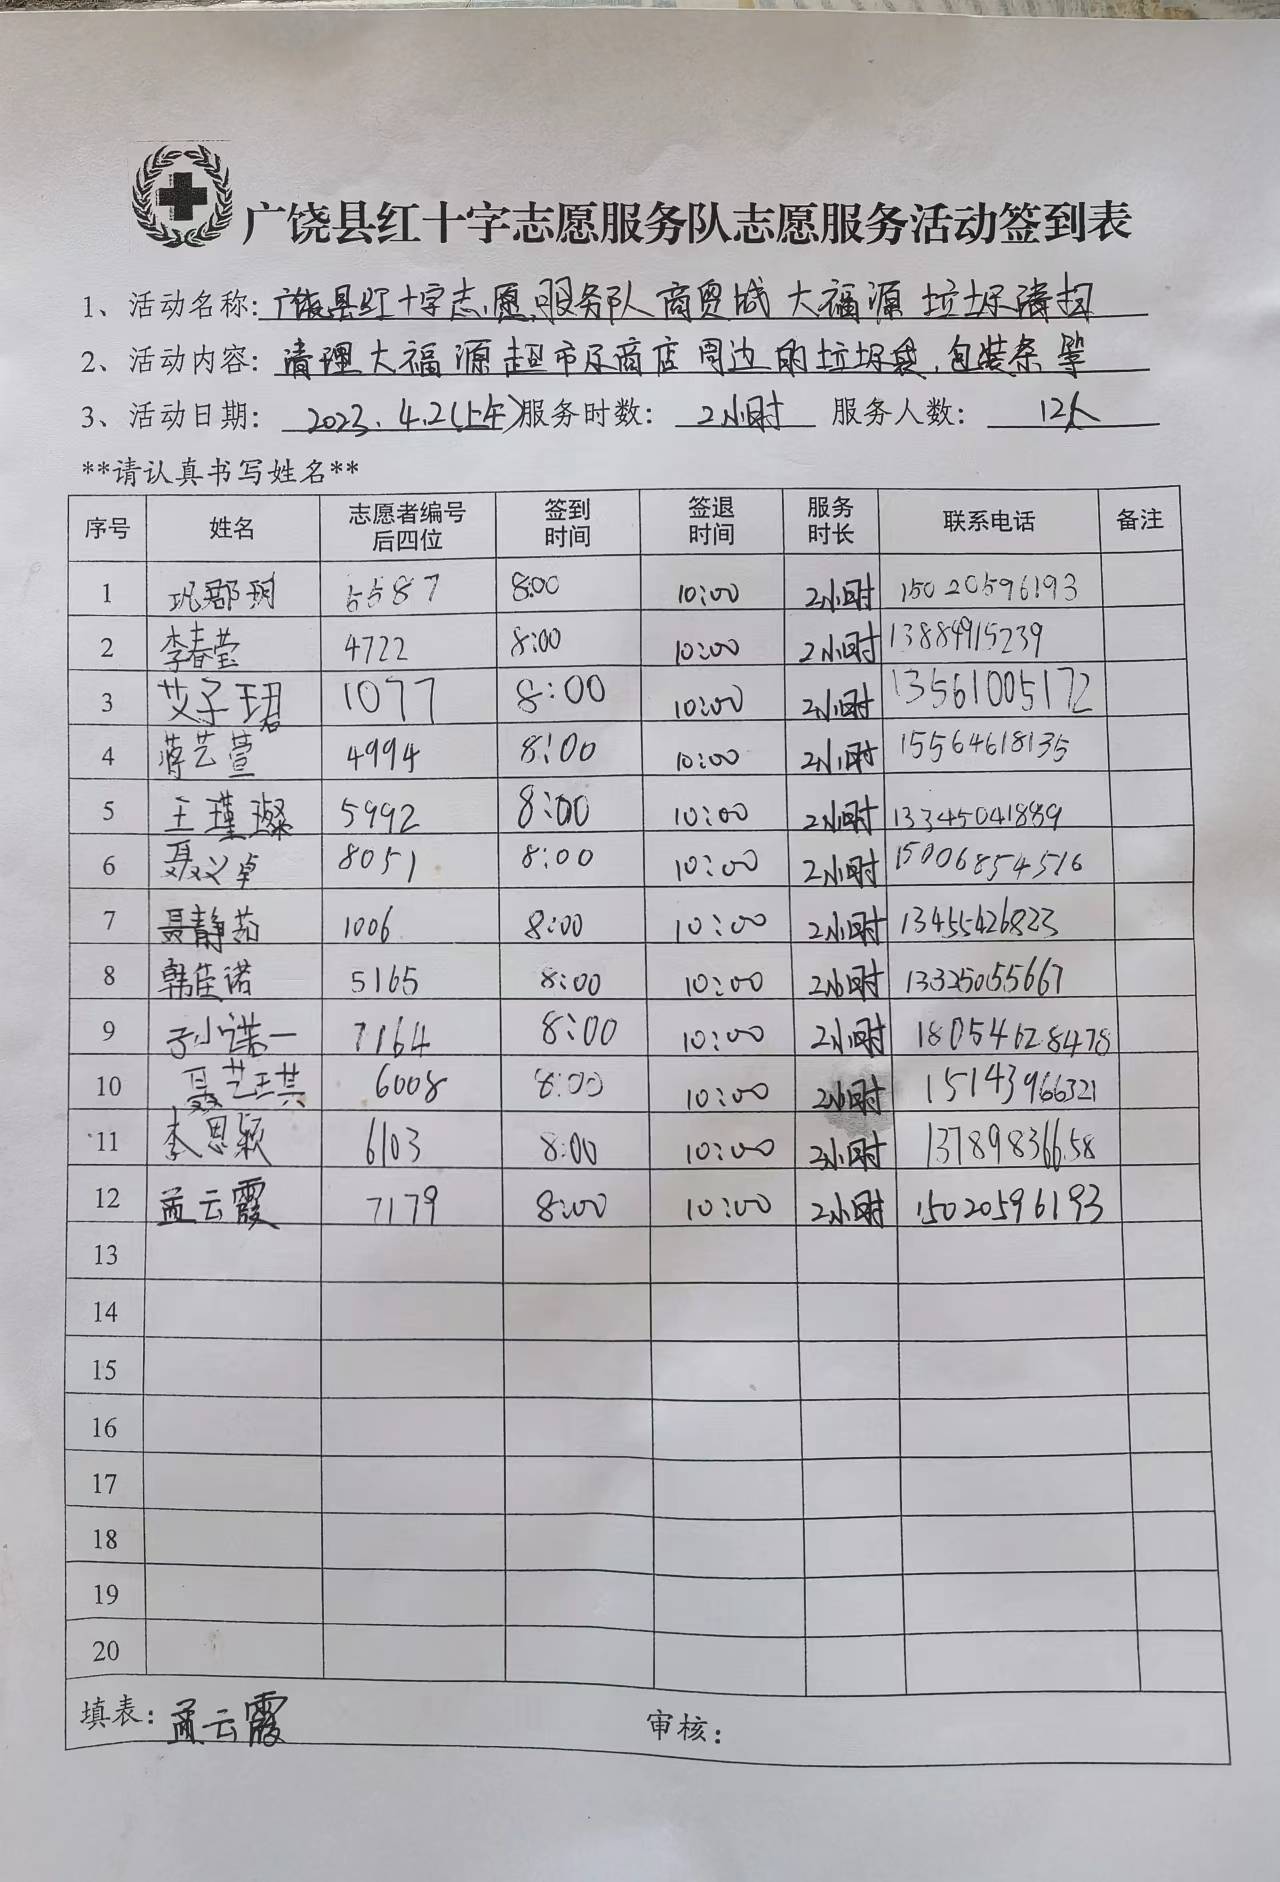 广饶县红十字志愿服务队志愿服务活动签到表
1、活动名称:广饶县红十字志愿服务队商贸城大福源垃圾清扫
2、活动内容:清理大福源超市及商店周边的垃圾袋、包装条等
3、活动日期: 2023.4.2(上午) 服务时数: 2小时 服务人数: 12人
**请认真书写姓名**
序号 姓名 志愿者编号后四位 签到时间 签退时间 服务时长 联系电话 备注
1 巩郡玥 5587 8:00 10:00 2小时 15020596193
2 李春莹 4722 8:00 10:00 2小时 13884915239
3 艾子珺 1077 8:00 10:00 2小时 13561005172
4 蒋艺萱 4994 8:00 10:00 2小时 15564618135
5 王瑾璨 5992 8:00 10:00 2小时 13345041889
6 聂义卓 8051 8:00 10:00 2小时 15006854516
7 聂静茹 1006 8:00 10:00 2小时 13455426823
8 韩佳诺 5165 8:00 10:00 2小时 13325055667
9 孙诺一 7164 8:00 10:00 2小时 18054628478
10 聂艺琪 6008 8:00 10:00 2小时 15143966321
11 李思颖 6103 8:00 10:00 2小时 13789836658
12 孟云霞 7179 8:00 10:00 2小时 15020596193
13
14
15
16
17
18
19
20
填表:孟云霞 审核: